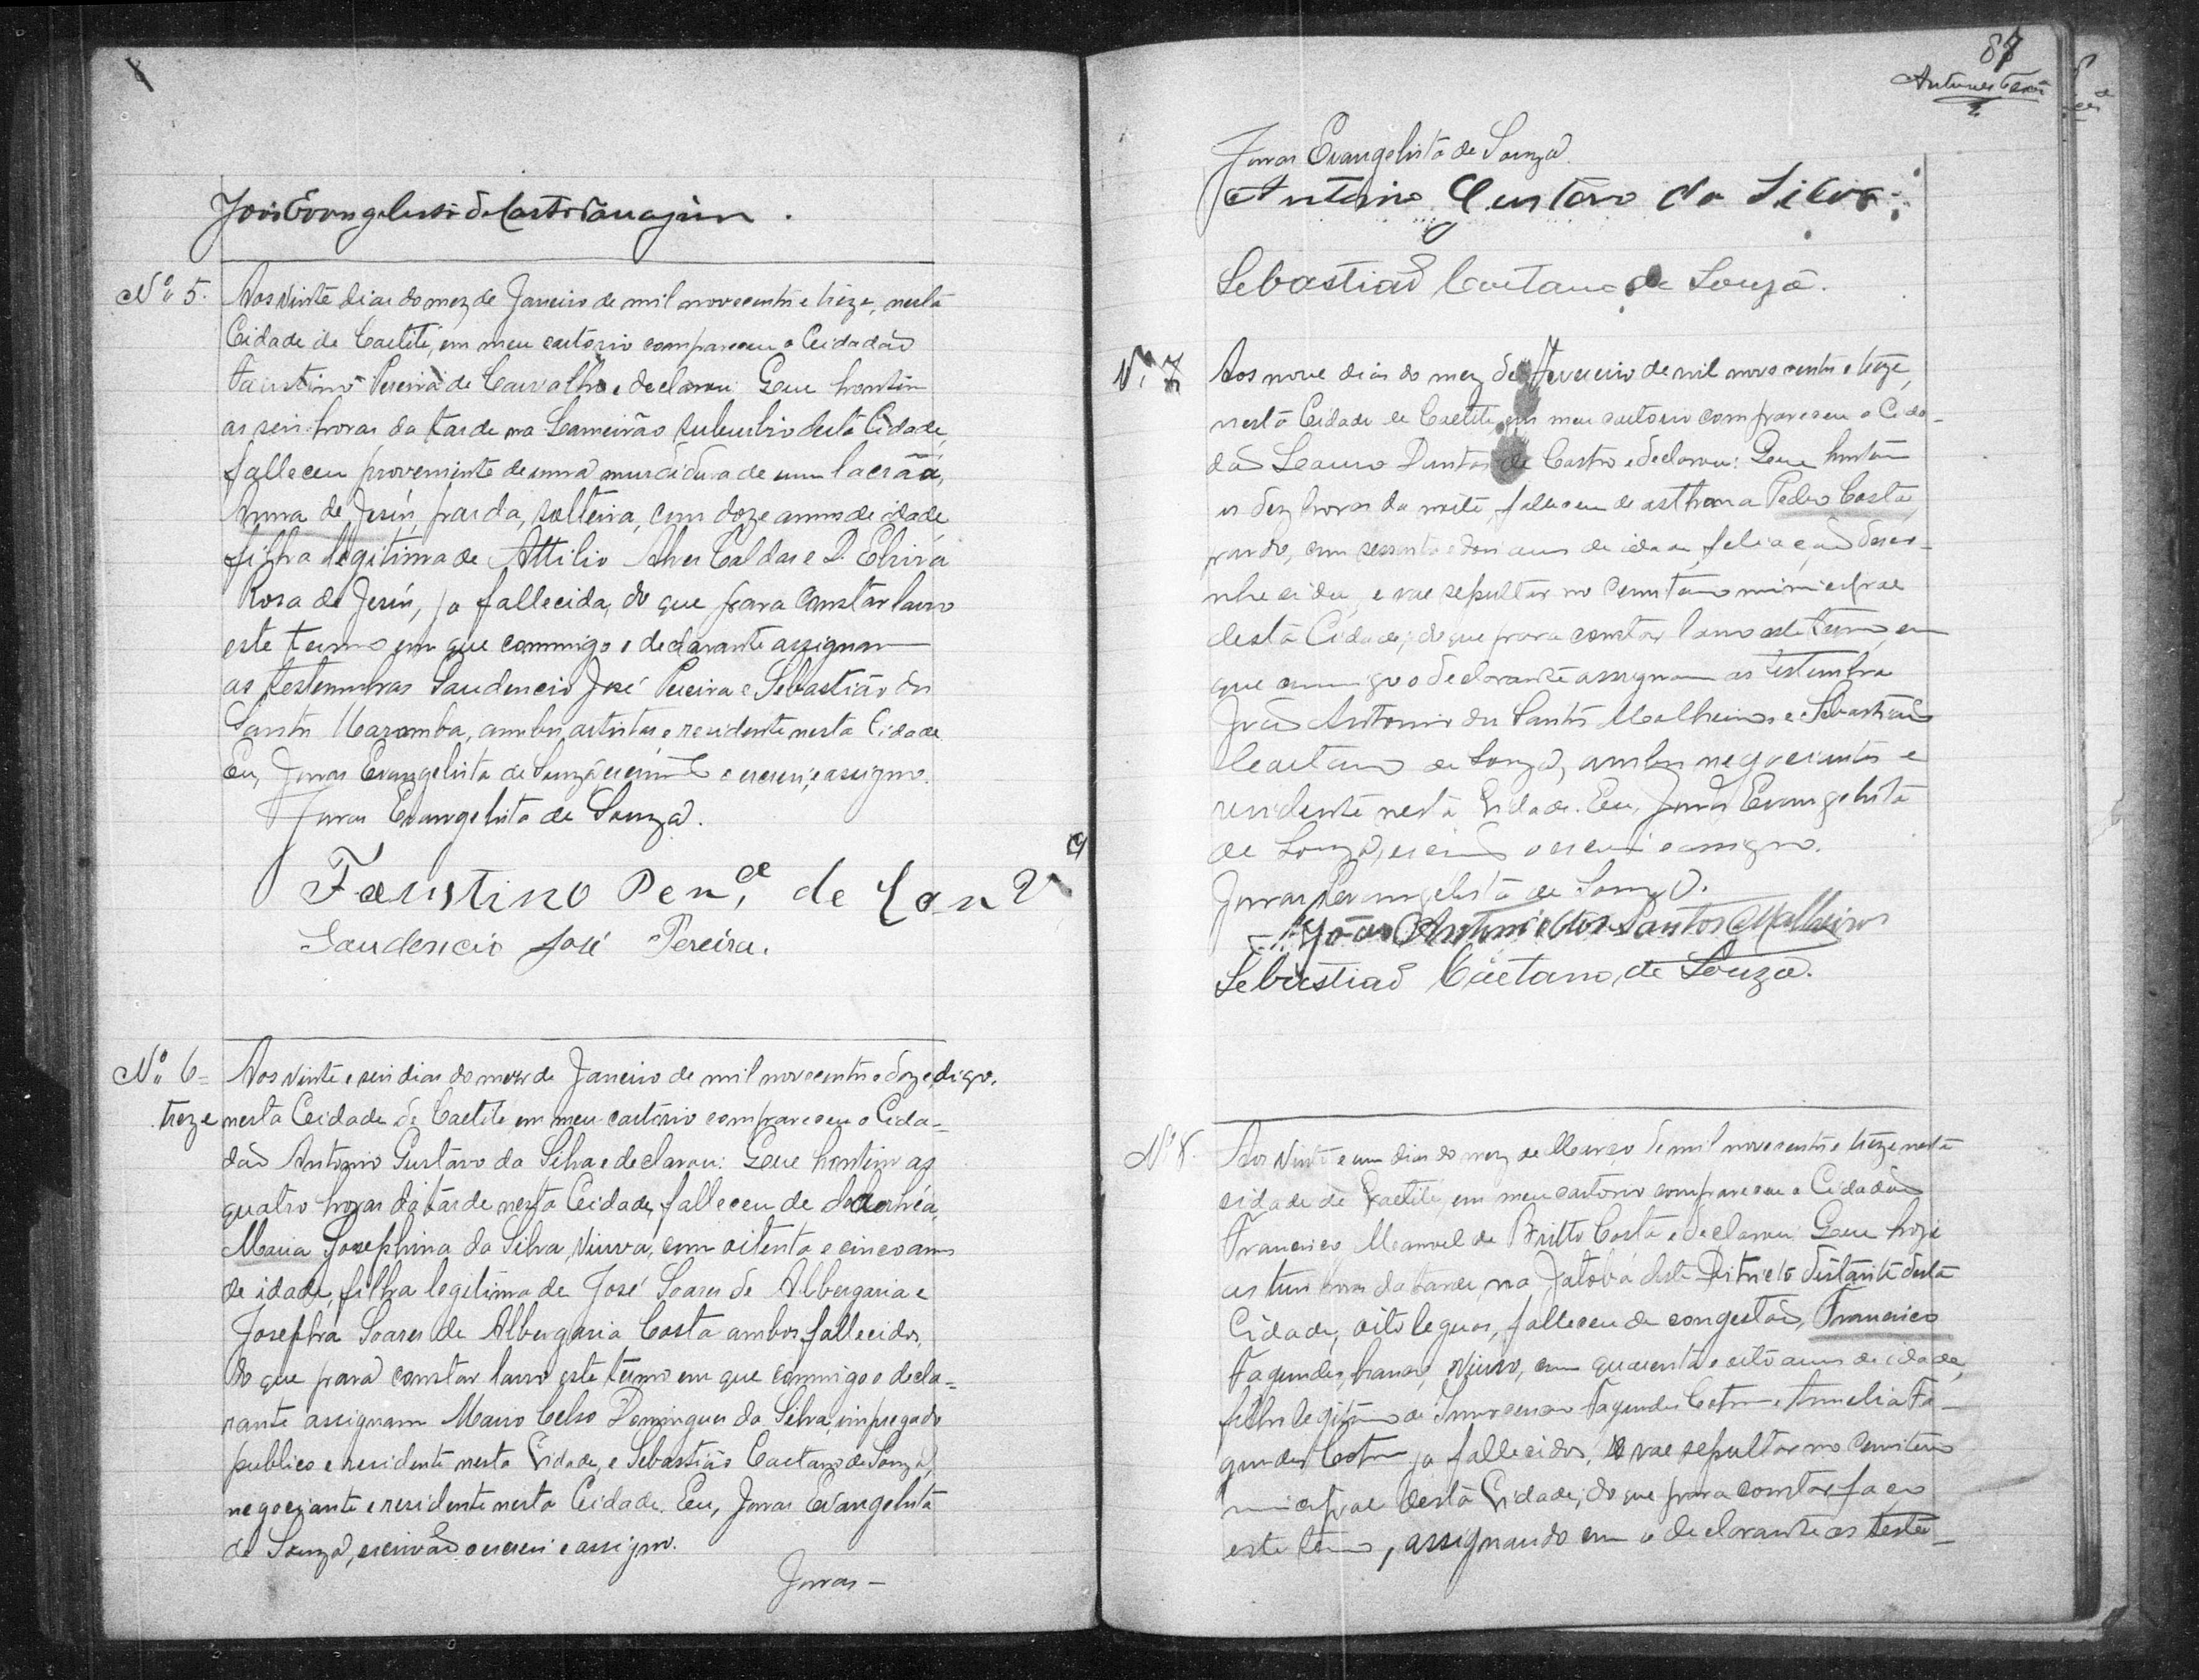 João Evangelista de Castro
Nº 5. Aos vinte dias do mez de Janeiro de mil novecentos e treze, nesta
Cidade de Caetité, em meu cartorio compareceu o Cidadão
Faustino Pereira de Carvalho e declarou: Que hontem
as seis horas da tarde na Lameirão suburbio desta Cidade,
falleceu proveniente de uma murdidura de um lacráo,
Anna de Jesús, parda, solteira, com doze annos de idade
filha legitima de Attilio Alves Caldas e D. Elvira
Rosa de Jesús, ja fallecida, do que para constar lavro
este termo em que commigo o declarante assignam
as testemunhas Gaudencio José Pereira e Sebastião dos
Santos Maromba, ambos artistas e residente nesta Cidade.
Eu, Jonas Evangelista de Souza, escrivão o escrevi, e assigno.
Jonas Evangelista de Souza.
Faustino Per.ª de
Gaudencio José Pereira.
Nº 6= Aos vinte e seis dias do mez de Janeiro de mil novecentos e doze, digo,
treze nesta Cidade de Caetité em meu cartorio compareceu o Cida-
dão Antonio Gustavo da Silva e declarou: Que hontem as
quatro horas da tarde nesta Cidade, falleceu de
Maria Josephina da Silva, viuva, com oitenta e cinco annos
de idade, filha legitima de José Soares de Albergaria e
Josepha Soares de Albergaria Costa ambos fallecidos,
do que para constar lavro este termo em que commigo o decla-
rante assignam Mario Celso Domingues da Silva, impregado
publico e residente nesta Cidade, e Sebastião Caetano de Souza,
negociante e residente nesta Cidade. Eu, Jonas Evangelista
de Souza, escrivão o escrevi e assigno.
Jonas -
87
Antunes
Jonas Evangelista de Souza.
Antonio Gustavo da Silva
Sebastião Caetano de Souza.
Nº 7 Aos nove dias do mez de Fevereiro de mil novecentos e treze,
nesta Cidade de Caetité, em meu cartorio compareceu o Cida-
dão Lauro Dantas de Castro e declarou: Que hontem
as dez horas da noite, falleceu de asthma Pedro Costa,
pardo, com sessenta e dois annos de idade, filiação desco-
nhecida, e vae sepultar no Cemiterio municipal
desta Cidade; do que para constar lavro este termo em
que commigo o declarante assignam as testemunhas
João Antonio dos Santos Malheiros e Sebastião
Caetano de Souza, ambos negociantes e
residente nesta Cidade. Eu, Jonas Evangelista
de Souza, escrivão o escrevi e assigno.
Jonas Evangelista de Souza.
João Antonio dos Santos Malheiros
Sebastião Caetano de Souza.
Nº 8. Aos vinte e um dias do mez de Março de mil novecentos e treze nesta
cidade de Caetité, em meu cartorio compareceu o Cidadão
Francisco Manoel de Britto Costa e declarou: Que hoje
as tres horas da tarde, na Jatobá deste Districto distante desta
Cidade, oito leguas, falleceu de congestão, Francisco
Fagundes, branco, viuvo, com quarenta e oito annos de idade,
filho legitimo de Innocencio Fagundes Cotrim e Amelia Fa-
gundes Cotrim ja fallecidos, e vae sepultar no Cemiterio
municipal desta Cidade; do que para constar faço
este termo, assignando com o declarante as teste-